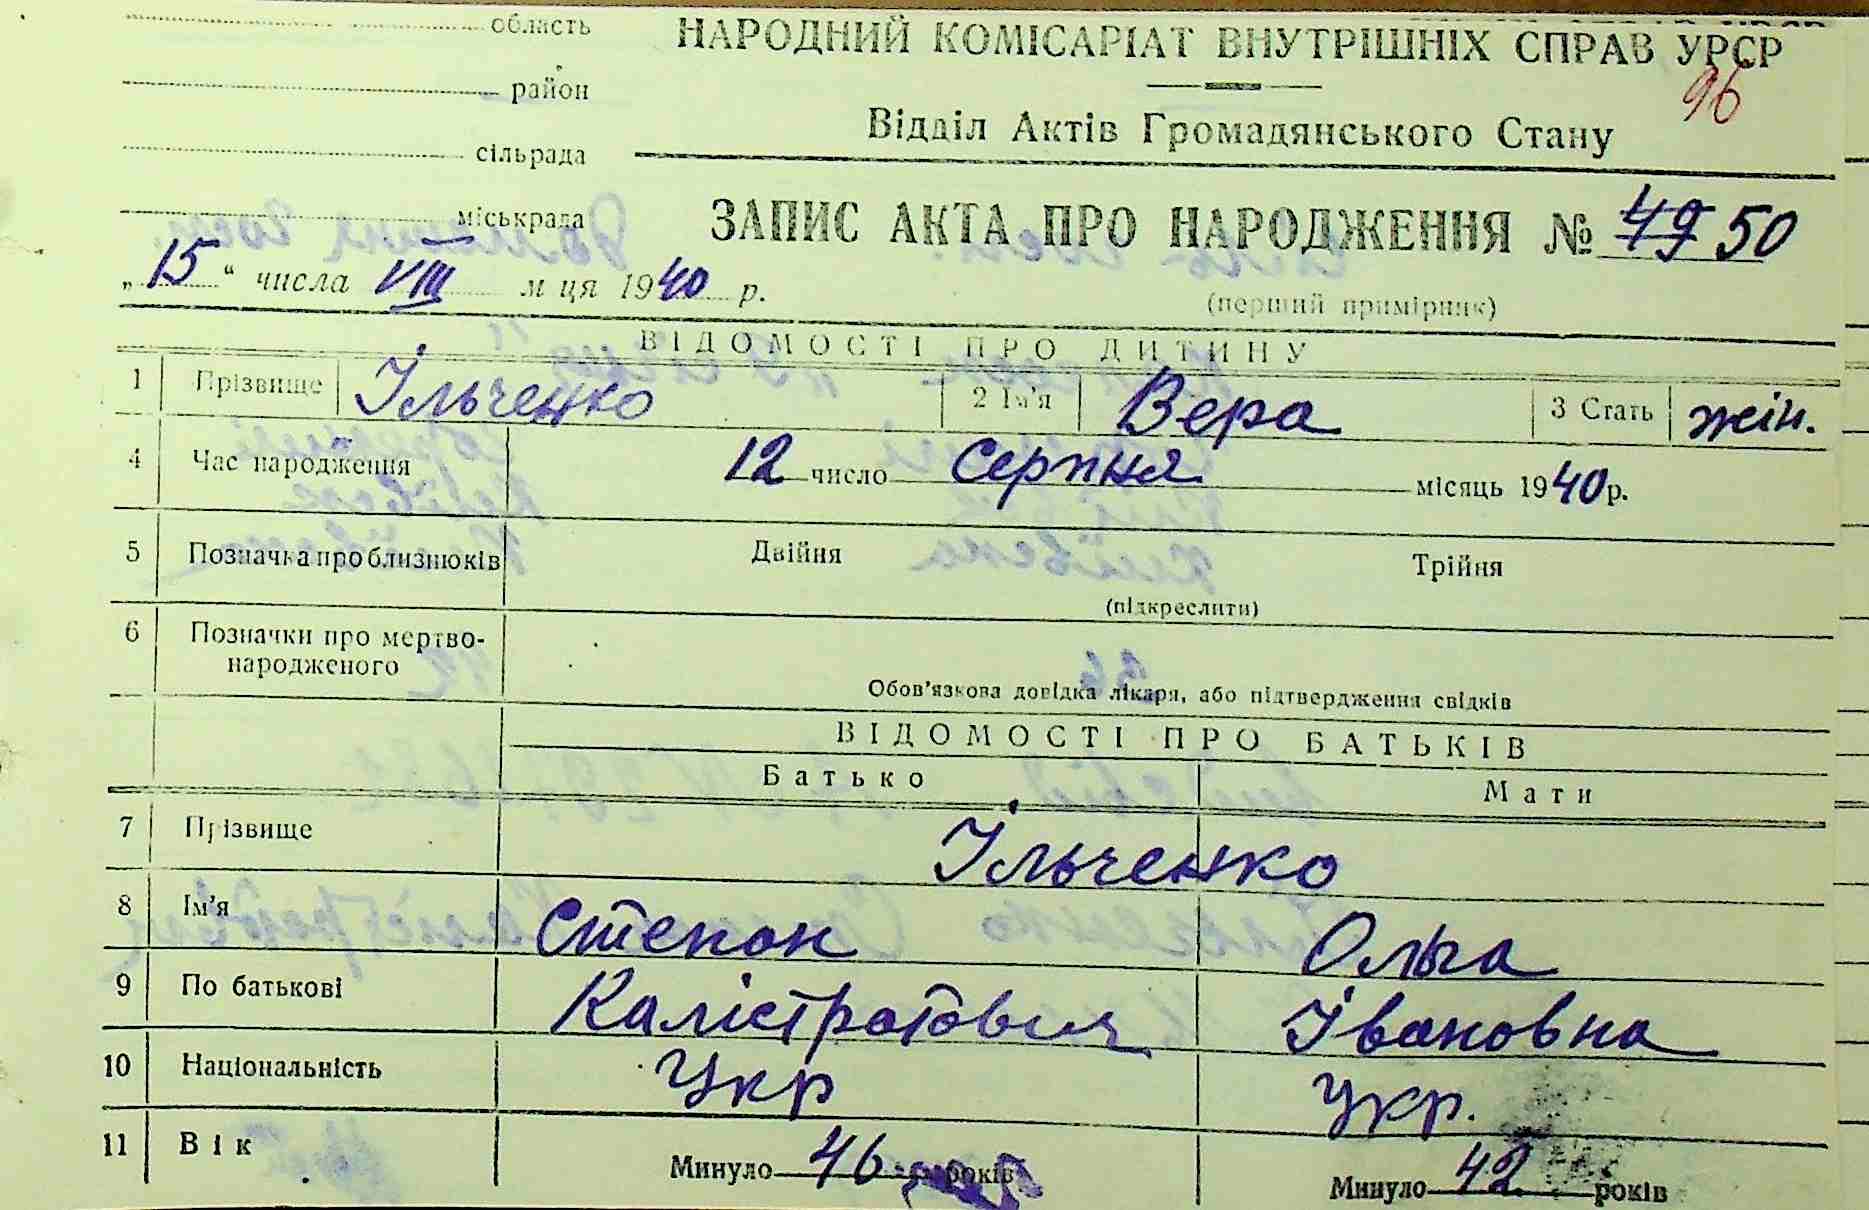 область
район
сільрада
міськрада
НАРОДНИЙ КОМІСАРІАТ ВНУТРІШНІХ СПРАВ УРСР
96
Відділ Актів Громадянського Стану
ЗАПИС АКТА ПРО НАРОДЖЕННЯ № 49 50
„15“ числа VIII м ця 1940 р.
(перший примірник)
ВІДОМОСТІ ПРО ДИТИНУ
1 Прізвище Ільченко 2 Ім'я Вера 3 Стать жін.
4 Час народження 12 число Серпня місяць 1940 р.
5 Позначка про близнюків Двійня Трійня
(підкреслити)
6 Позначки про мертво-
народженого
Обов'язкова довідка лікаря, або підтвердження свідків
ВІДОМОСТІ ПРО БАТЬКІВ
Батько Мати
7 Прізвище Ільченко
8 Ім'я Степан Ольга
9 По батькові Калістратович Івановна
10 Національність Укр Укр.
11 Вік Минуло 46 років Минуло 42 років